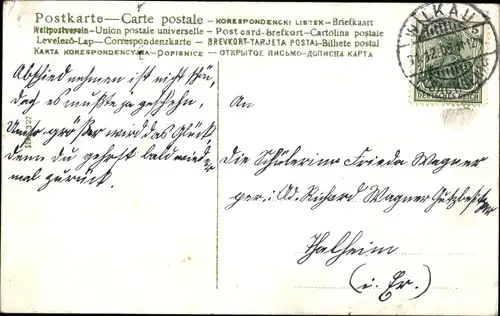 Postkarte — Carte postale — KORESPONDENCNI LISTEK — Briefkaart
Weltpostverein — Union postale universelle — Post card - Brefkort - Cartolina postale
Levelező-Lap — Correspondenzkarte — BREVKORT - TARJETA POSTAL — Bilhete postal
KARTA KORESPONDENCYJNA — DOPISNICE — ОТКРЫТОЕ ПИСЬМО — ДОПИСНА КАРТА
WILKAU
5
DEUTSCHES REICH
Abschied nehmen ist nicht schön,
doch es mußte ja geschehn,
Umso größer wird das Glück,
denn Du gehst bald wieder
mal zurück.
An
Die Schülerin Frieda Wagner
per. Ad. Richard Wagner Gutsbesitzer
Thalheim
(i. Er.)